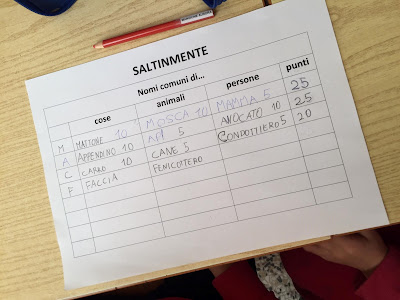 SALTINMENTE
Nomi comuni di...
cose animali persone punti
M MATTONE 10 MOSCA 10 MAMMA 5 25
A APPENDINO 10 API 5 AVOCATO 10 25
C CARRO 10 CANE 5 CONDOTTIERO 5 20
F FACCIA FENICOTTERO